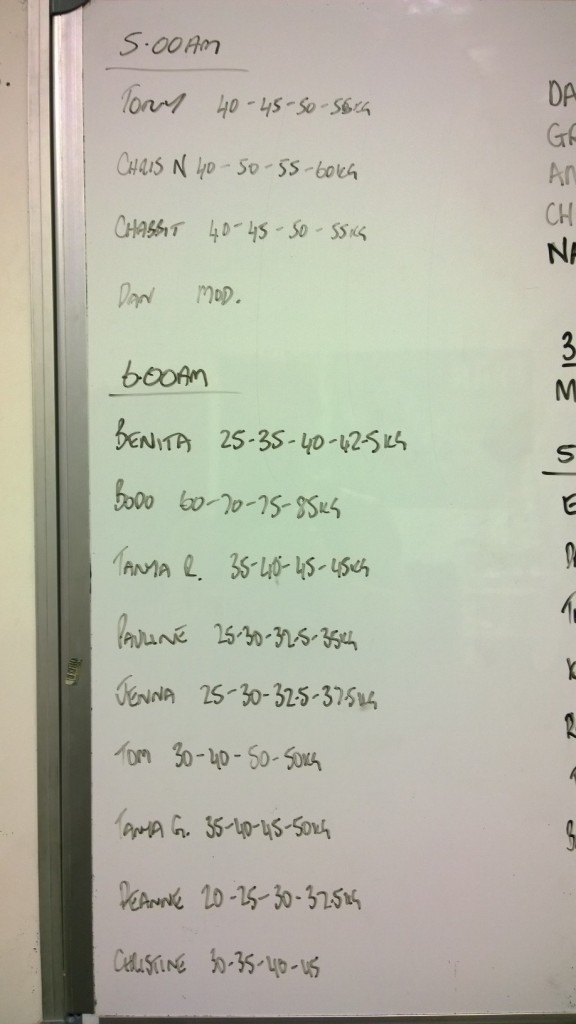 5.00AM
TONY 40-45-50-55KG
CHRIS N 40-50-55-60KG
CHABBIT 40-45-50-55KG
DAN MOD.
6.00AM
BENITA 25-35-40-42.5KG
BODO 60-70-75-85KG
TANYA R. 35-40-45-45KG
PAULINE 25-30-32.5-35KG
JENNA 25-30-32.5-37.5KG
TOM 30-40-50-50KG
TANYA G. 35-40-45-50KG
DEANNE 20-25-30-32.5KG
CHRISTINE 30-35-40-45
DA
GR
AN
CH
NA
3
M
5
E
D
T
K
R
T
B